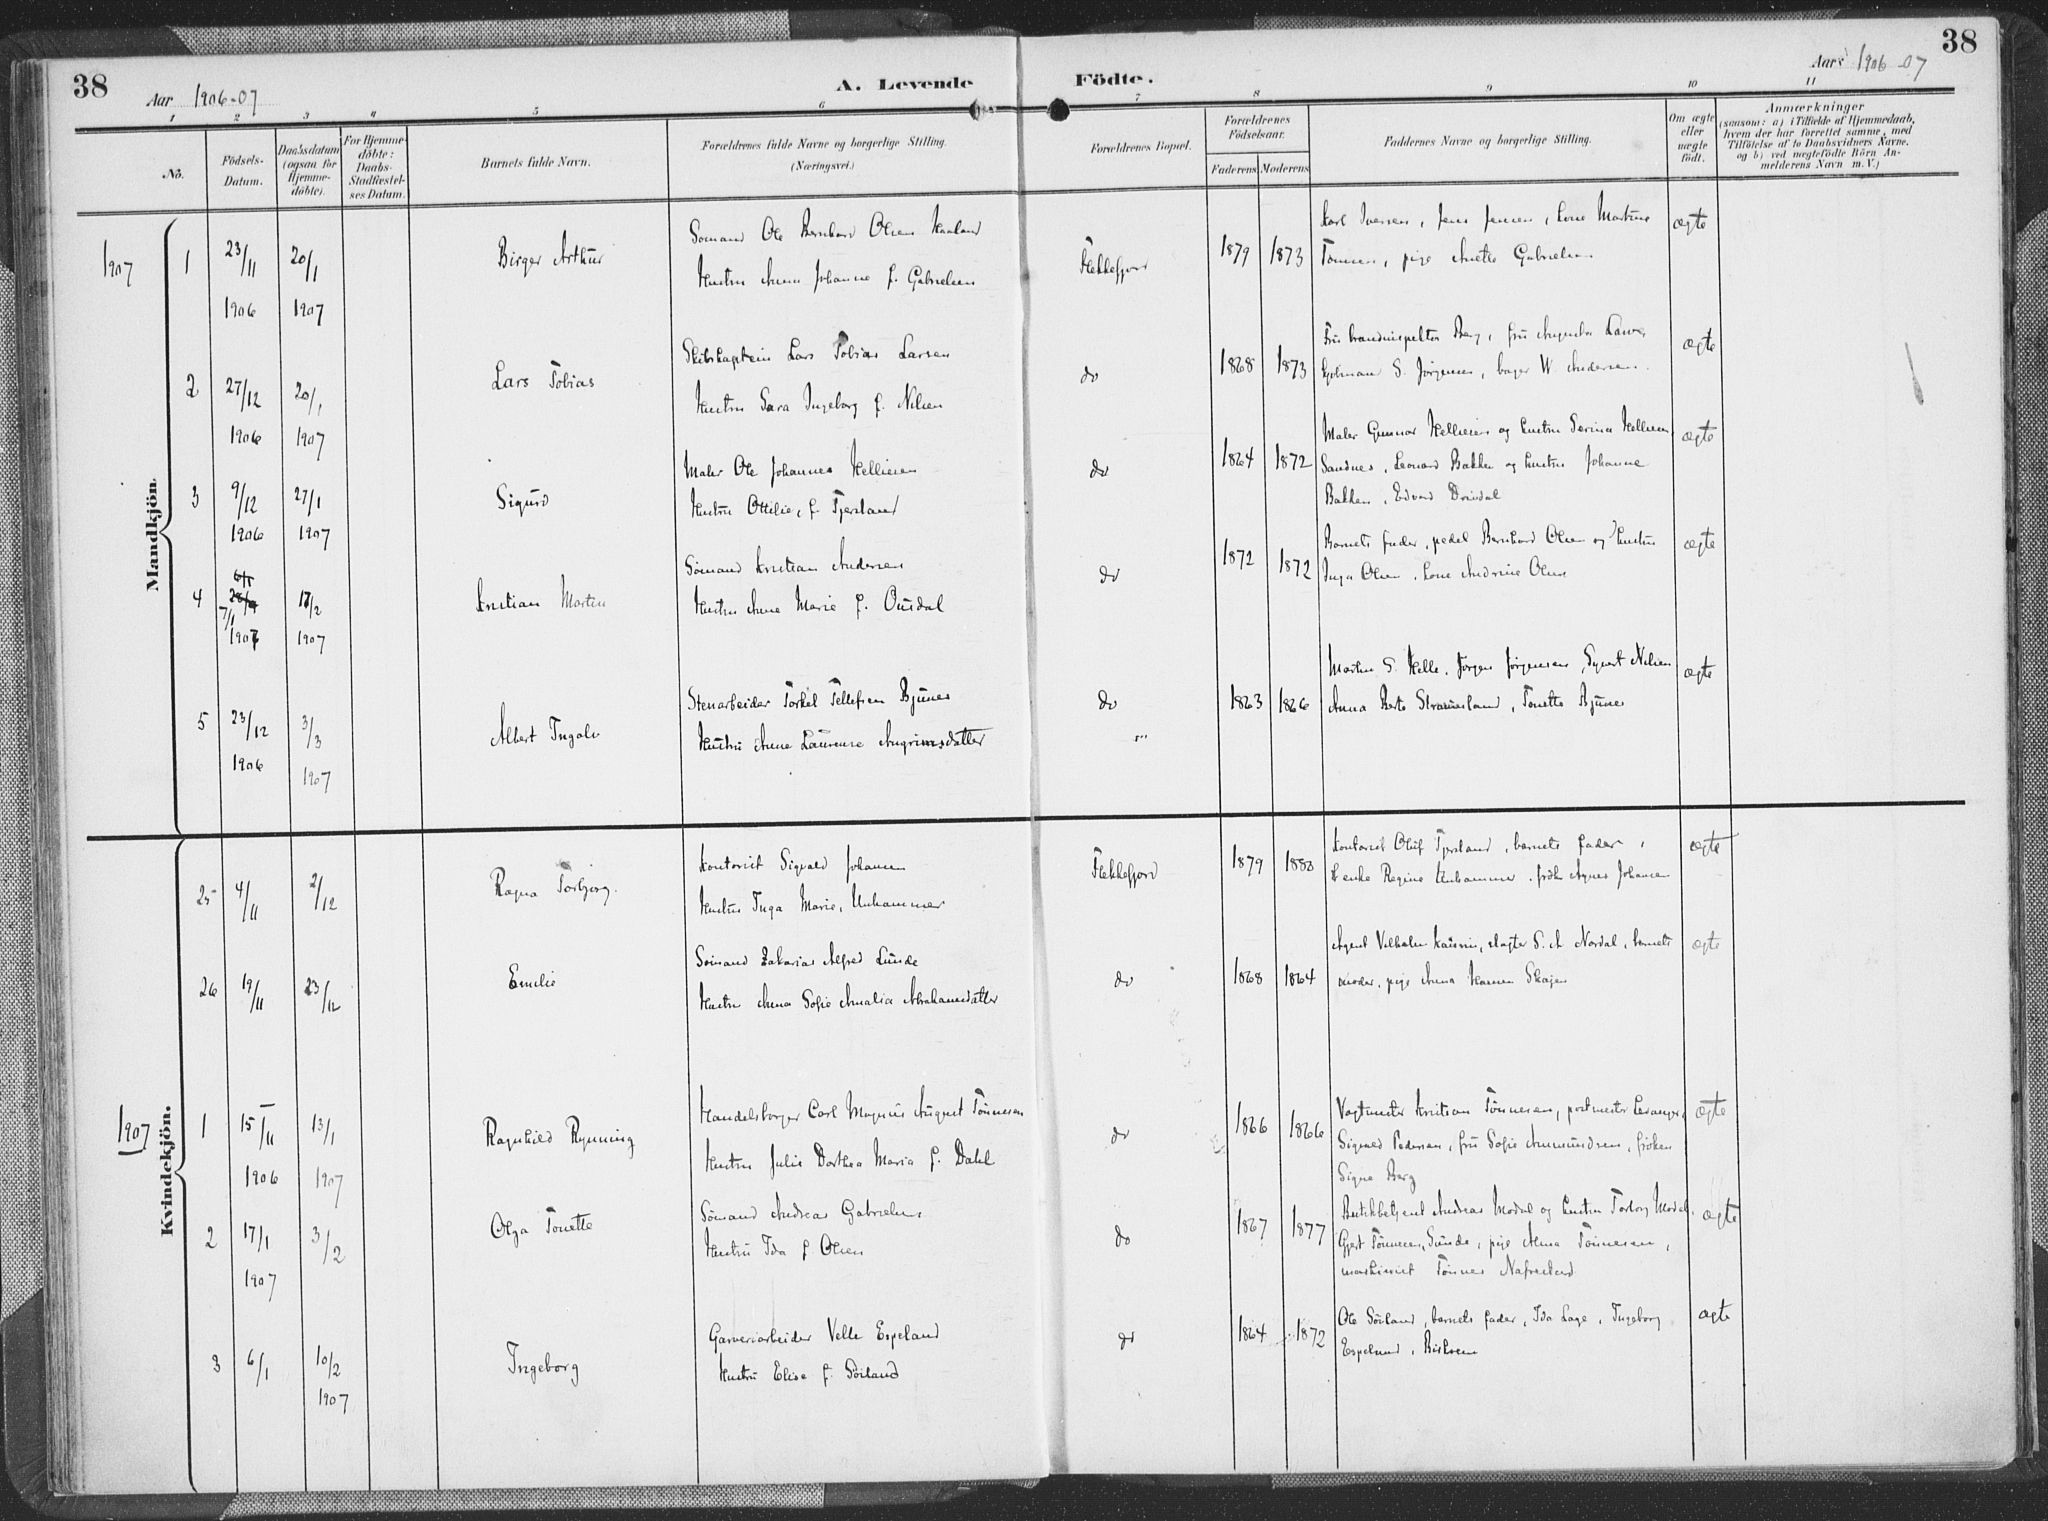 38
Aar 1906-07
A. Levende Födte.
Aar 1906-07
38
1 2 3 4 5 6 7 8 9 10 11
No.
Födsels-Datum.
Daabsdatum (ogsaa for Hjemme-döbte).
For Hjemme-döbte: Daabs-Stadfæstel-ses Datum.
Barnets fulde Navn.
Forældrenes fulde Navne og borgerlige Stilling.
(Næringsvei.)
Forældrenes Bopæl.
Forældrenes Födselsaar.
Faderens Moderens
Faddernes Navne og borgerlige Stilling.
Om ægte eller uægte födt.
Anmærkninger
(saasom: a) i Tilfælde af Hjemmedaab,
hvem der har forrettet samme, med
Tilföielse af to Daabsvidners Navne.
og b) ved uægtefödte Börn An-
melderens Navn m. V.)
Mandkjön.
1907
1 23/11 1906 20/1 1907 Birger Arthur
Sömand Ole Bernhard Olsen Haaland
Hustru Anna Johanne f. Gabrielsen
Flekkefjord 1879 1873
Karl Iversen, Jens Jensen, Lone Martine
Tönnesen, pige Anette Gabrielsen
ægte
2 27/12 1906 20/1 1907 Lars Tobias
Skibskaptein Lars Tobias Larsen
Hustru Sara Ingeborg f. Nilsen
do 1868 1873
Fru brandinspektör Berg, fru Augusta
S. Jörgensen, bager W. Andersen.
ægte
3 9/12 1906 27/1 1907 Sigurd
Maler Ole Johannes Hellesen
Hustru Ottilie, f. Tjersland
do 1864 1872
Maler Gunnar Hellesen og hustru Serina Hellesen,
Sandnes, Leonard Bakken og hustru Johanne
Bakken, Edvard Drivdal
ægte
4 7/1 1907 17/2 1907 Kristian Martin
Sömand Kristian Andersen
Hustru Anne Marie f. Ousdal
do 1872 1872
Barnets fader, pedel Bernhard Olsen og hustru
Inga Olsen, Lone Andrine Olsen
ægte
5 23/12 1906 3/3 1907 Albert Ingolv
Stenarbeider Torkel Tellefsen Bjunes
Hustru Anne Laurense Angrimsdatter
do 1863 1866
Martin S. Helle, Jörgen Jörgensen, Syvert Nilsen
Anna Berte Strømsland, Tonette Bjunes
ægte
Kvindekjön.
25 4/11 2/12 Ragna Torbjorg.
Kontorist Sigvald Johansen
Hustru Inga Marie, Unhammer
Flekkefjord 1879 1880
Kontorist Oluf Tjersland, barnets fader,
enke Regine Unhammer, frök Agnes Johansen
ægte
26 19/11 23/12 Emilie
Sömand Zakarias Alfred Lunde
Hustru Anna Sofie Amalia Abrahamsdatter
do 1868 1864
Agent Vilhelm, slagter S. A. Nordal, barnets
moder, pige Anna Hansen Skajen
ægte
1907
1 15/11 1906 13/1 1907 Ragnhild Rynning
Handelsborger Carl Magnus August Tönnesen
Hustru Julie Dorthea Maria f. Dahl
do 1866 1866
Vagtmester Kristian Tönnesen, postmester Levanger,
Sigvald Pedersen, fru Sofie Ammundsen, fröken
Signe Berg
ægte
2 17/1 1907 3/2 Olga Tonette
Sömand Andreas Gabrielsen
Hustru Ida f. Olsen
do 1867 1877
Butikbetjent Andreas Modal og hustru Torborg Modal,
Gjert Tönnesen, Sunde, pige Alma Tönnesen,
maskinist Tönnes Nafreland
ægte
3 6/1 10/2 1907 Ingeborg
Garveriarbeider Velle Espeland
Hustru Elise f. Söiland
do 1864 1872
Ole Söiland, barnets fader, Ida Lage, Ingeborg
Espeland,
ægte